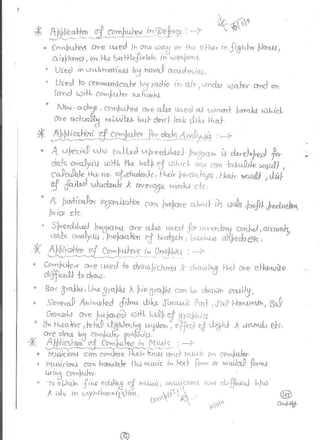 * Application of Computer in Defence : →
• Computers are used in one way or the other in fighter planes,
airplanes, on the battlefield in weapons
• Used in submarines by naval academies.
• Used to communicate by radio in air, under water and on
land with computer networks
• Now-a-days, computers are also used as smart bombs which
are actually missiles but don't look like that.
* Application of Computer for data Analysis : →
• A special s/w called spreadsheet program is developed for
data analysis with the help of which one can tabulate result,
calculate the no. of students, their percentage, their result, list
of failed students & average marks etc.
• A particular organisation can prepare about its sale, profit, production,
price etc.
• Spreadsheet programs are also used for inventory control, accounts,
sale analysis, preparation of budgets, business etc.
* Application of Computers in Graphics : →
• Computers are used to draw pictures & drawing that are otherwise
difficult to draw.
• Bar graphs, line graphs & pie graphs can be drawn easily.
• Several Animated films like Jurassic Park, Jai Hanuman, Bal
Ganesha are prepared with help of graphics
• In theatre, total lightening system, effect of light & sounds etc.
are done by computer graphics.
* Application of Computers in Music : →
• Musicians can compose their tunes and music on computer.
• musicians can translate the music in text form or musical form
using computer.
• To obtain fine editing of music, musicians use different h/w
& s/w in synchronization.